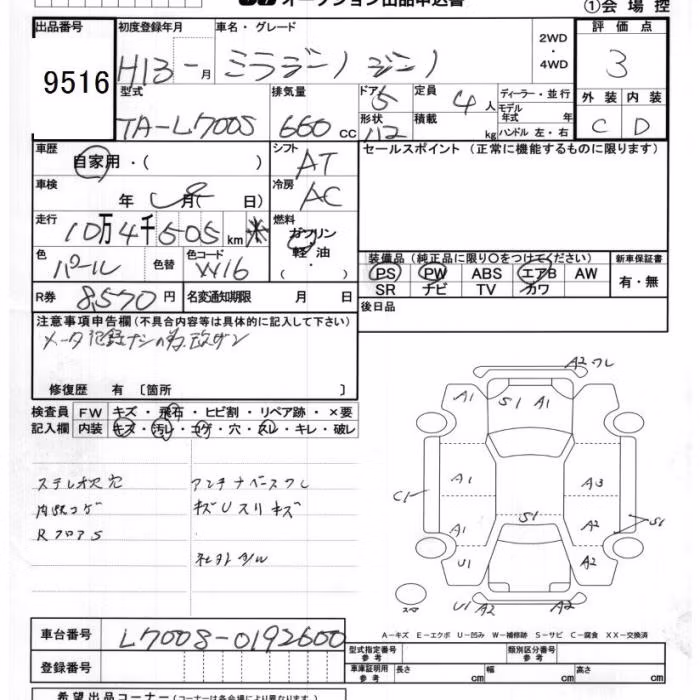 オークション出品申込書
①会場控
出品番号
9516
初度登録年月
H13 - 月
車名・グレード
ミラジーノ ジーノ
2WD
・
4WD
評価点
3
型式
TA-L700S
排気量
660 cc
ドア 5
形状 112
定員 4 人
積載 kg
ディーラー・並行
モデル年式 年
ハンドル 左・右
外装 内装
C D
車歴
自家用・( )
シフト
AT
セールスポイント (正常に機能するものに限ります)
車検
年 月( 日)
冷房
AC
走行
10万4千505km
燃料
ガソリン
軽・油
・( )
色
パール
色替
色コード
W16
装備品(純正品に限り○をつけてください)
新車保証書
PS PW ABS エアB AW
SR ナビ TV カワ
有・無
R券 8,570 円
名変通知期限 月 日
後日品
注意事項申告欄(不具合内容等は具体的に記入して下さい)
メータ記録ナシの為、改ザン
修復歴 有 〔箇所 〕
検査員記入欄
FW キズ・飛石・ヒビ割・リペア跡・×要
内装 キズ・汚レ・コゲ・穴・スレ・キレ・破レ
ステレオ灰穴
アンテナベースワレ
内張コゲ
キズUスリキズ
RフロアS
A2 ワレ
A1 S1 A1 A1
C1 A1 A3
A1 S1 A2 S1
U1 A2
スペア
U1 A2 A2
A-キズ E-エクボ U-凹み W-補修跡 S-サビ C-腐食 XX-交換済
車台番号
L700S-0192600
登録番号
型式指定番号 参考
類別区分番号 参考
車庫証明用 参考
長さ cm 幅 cm 高さ cm
希望出品コーナー(コーナーは各会場により異なります)